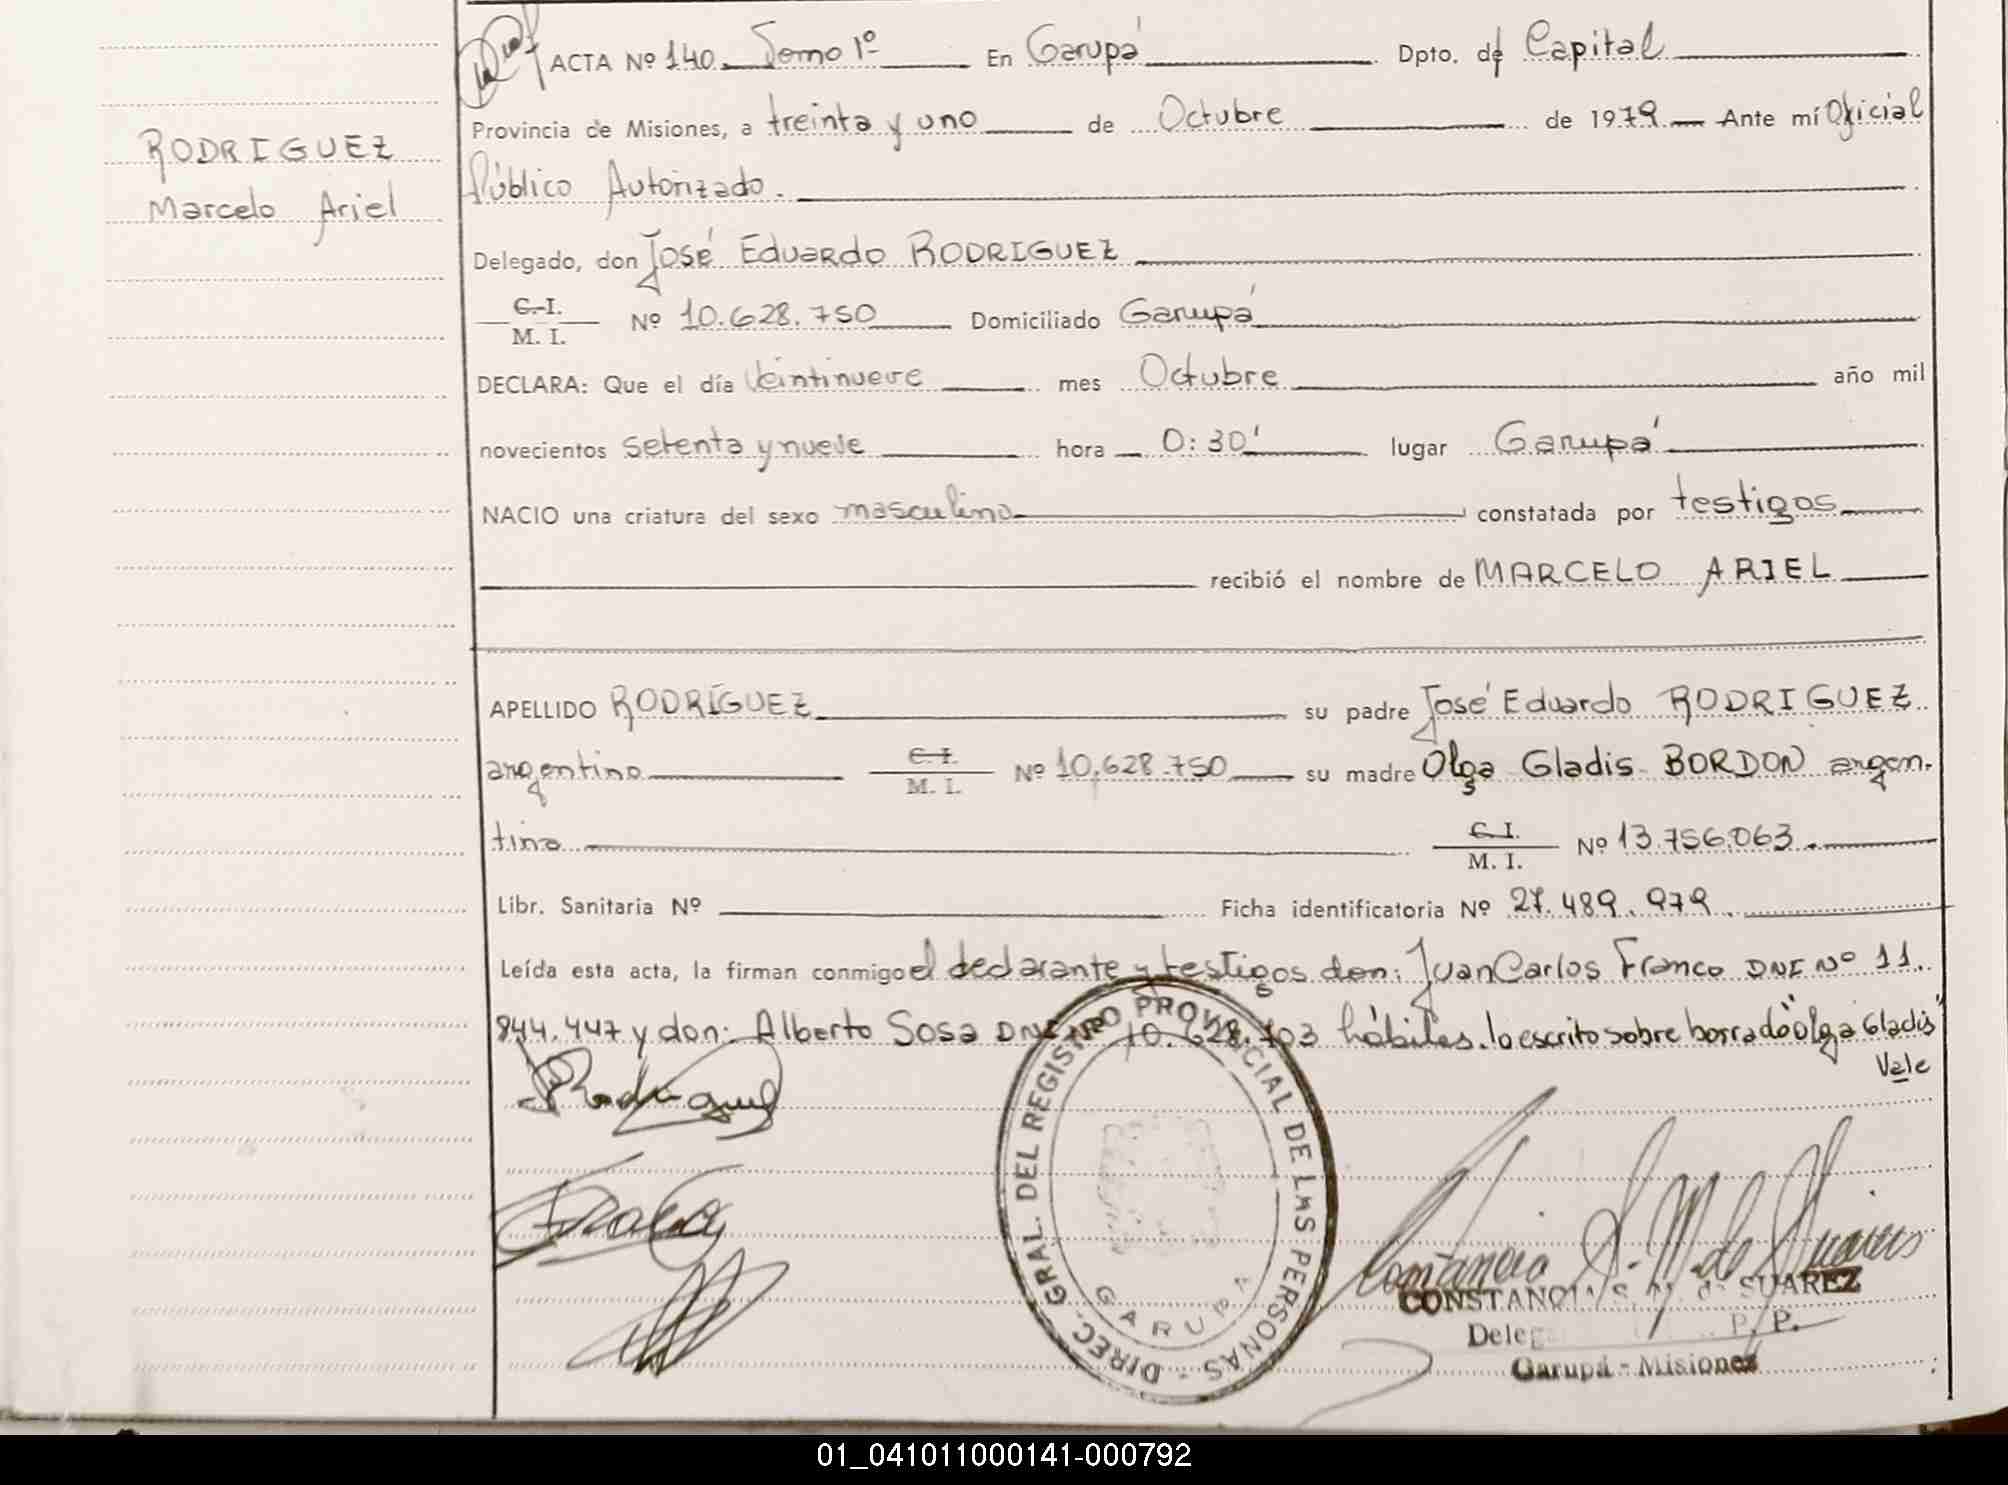 RODRIGUEZ
Marcelo Ariel
ACTA Nº 140 Tomo 1º En Garupá Dpto. de Capital
Provincia de Misiones, a treinta y uno de Octubre de 1979 Ante mí Oficial
Público Autorizado.
Delegado, don José Eduardo RODRIGUEZ
C. I.
M. I.
Nº 10.628.750 Domiciliado Garupá
DECLARA: Que el día veintinueve mes Octubre año mil
novecientos setenta y nueve hora 0:30' lugar Garupá
NACIO una criatura del sexo masculino constatada por testigos
recibió el nombre de MARCELO ARIEL
APELLIDO RODRÍGUEZ su padre José Eduardo RODRIGUEZ
argentino C. I. Nº 10.628.750 su madre Olga Gladis BORDON argen-
M. I.
tina C. I. Nº 13.756.063
M. I.
Libr. Sanitaria Nº Ficha identificatoria Nº 27.489.979
Leída esta acta, la firman conmigo el declarante y testigos don: Juan Carlos Franco DNI Nº 11.
844.447 y don: Alberto Sosa DNI Nº 10.628.703 hábiles. lo escrito sobre borrado "Olga Gladis"
Vale
DIREC. GRAL. DEL REGISTRO PROVINCIAL DE LAS PERSONAS -
GARUPA
CONSTANCIA S. M. de SUAREZ
P. P.
Garupá - Misiones
01_041011000141-000792